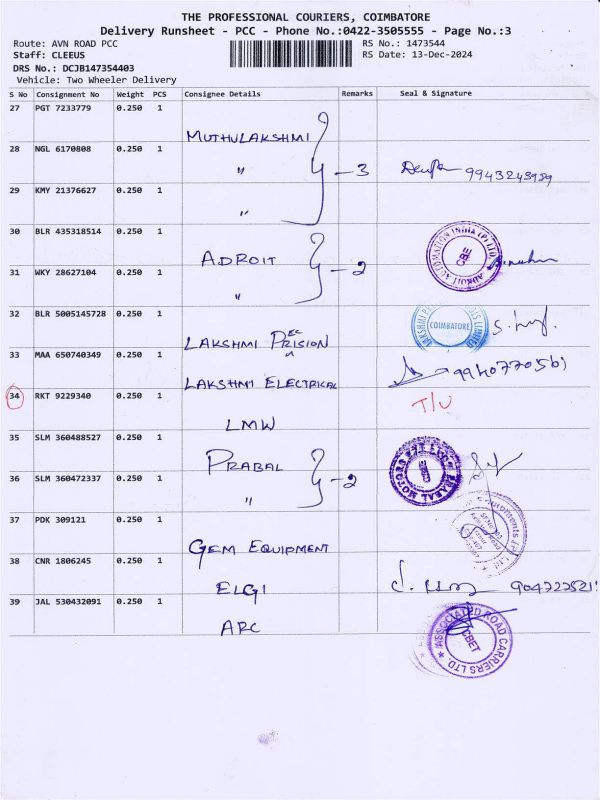 THE PROFESSIONAL COURIERS, COIMBATORE
Delivery Runsheet - PCC - Phone No.:0422-3505555 - Page No.:3
Route: AVN ROAD PCC RS No.: 1473544
Staff: CLEEUS RS Date: 13-Dec-2024
DRS No.: DCJB147354403
Vehicle: Two Wheeler Delivery
S No Consignment No Weight PCS Consignee Details Remarks Seal & Signature
27 PGT 7233779 0.250 1 MUTHULAKSHMI
28 NGL 6170808 0.250 1 " - 3 9943243939
29 KMY 21376627 0.250 1 "
30 BLR 435318514 0.250 1 ADROIT ADROIT AUTOMATION INDIA (P) LTD CBE
31 WKY 28627104 0.250 1 " - 2
32 BLR 5005145728 0.250 1 LAKSHMI PRISION EC COIMBATORE
33 MAA 650740349 0.250 1 LAKSHMI ELECTRICAL
34 RKT 9229340 0.250 1 LMW T/U
35 SLM 360488527 0.250 1 PRABAL
36 SLM 360472337 0.250 1 " - 2
37 PDK 309121 0.250 1 GEM EQUIPMENT
38 CNR 1806245 0.250 1 ELGI
39 JAL 530432091 0.250 1 ARC ASSOCIATED ROAD CARRIERS LTD. CBET